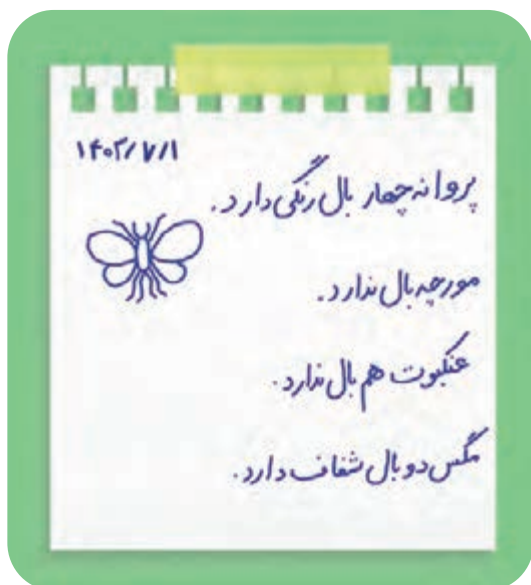 ۱۴۰۲/۷/۱
پروانه چهار بال رنگی دارد.
مورچه بال ندارد.
عنکبوت هم بال ندارد.
مگس دو بال شفاف دارد.